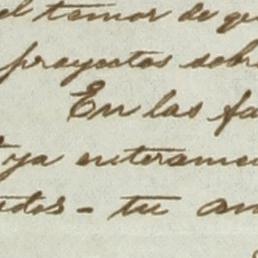 el temor de qu
proyectos sobr
En las fa
ya enterame
ados - tu am